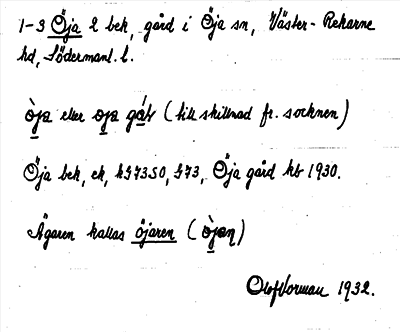 1-3 Öja 2 bek, gård i Öja sn, Väster-Rekarne
hd, Södermanl. l.
òja eller oja gǻḷ (till skillnad fr. socknen)
Öja bek, ek, kb 1930.
Ägaren kallas öjaren (òjaṇ)
Olof Vorman 1932.